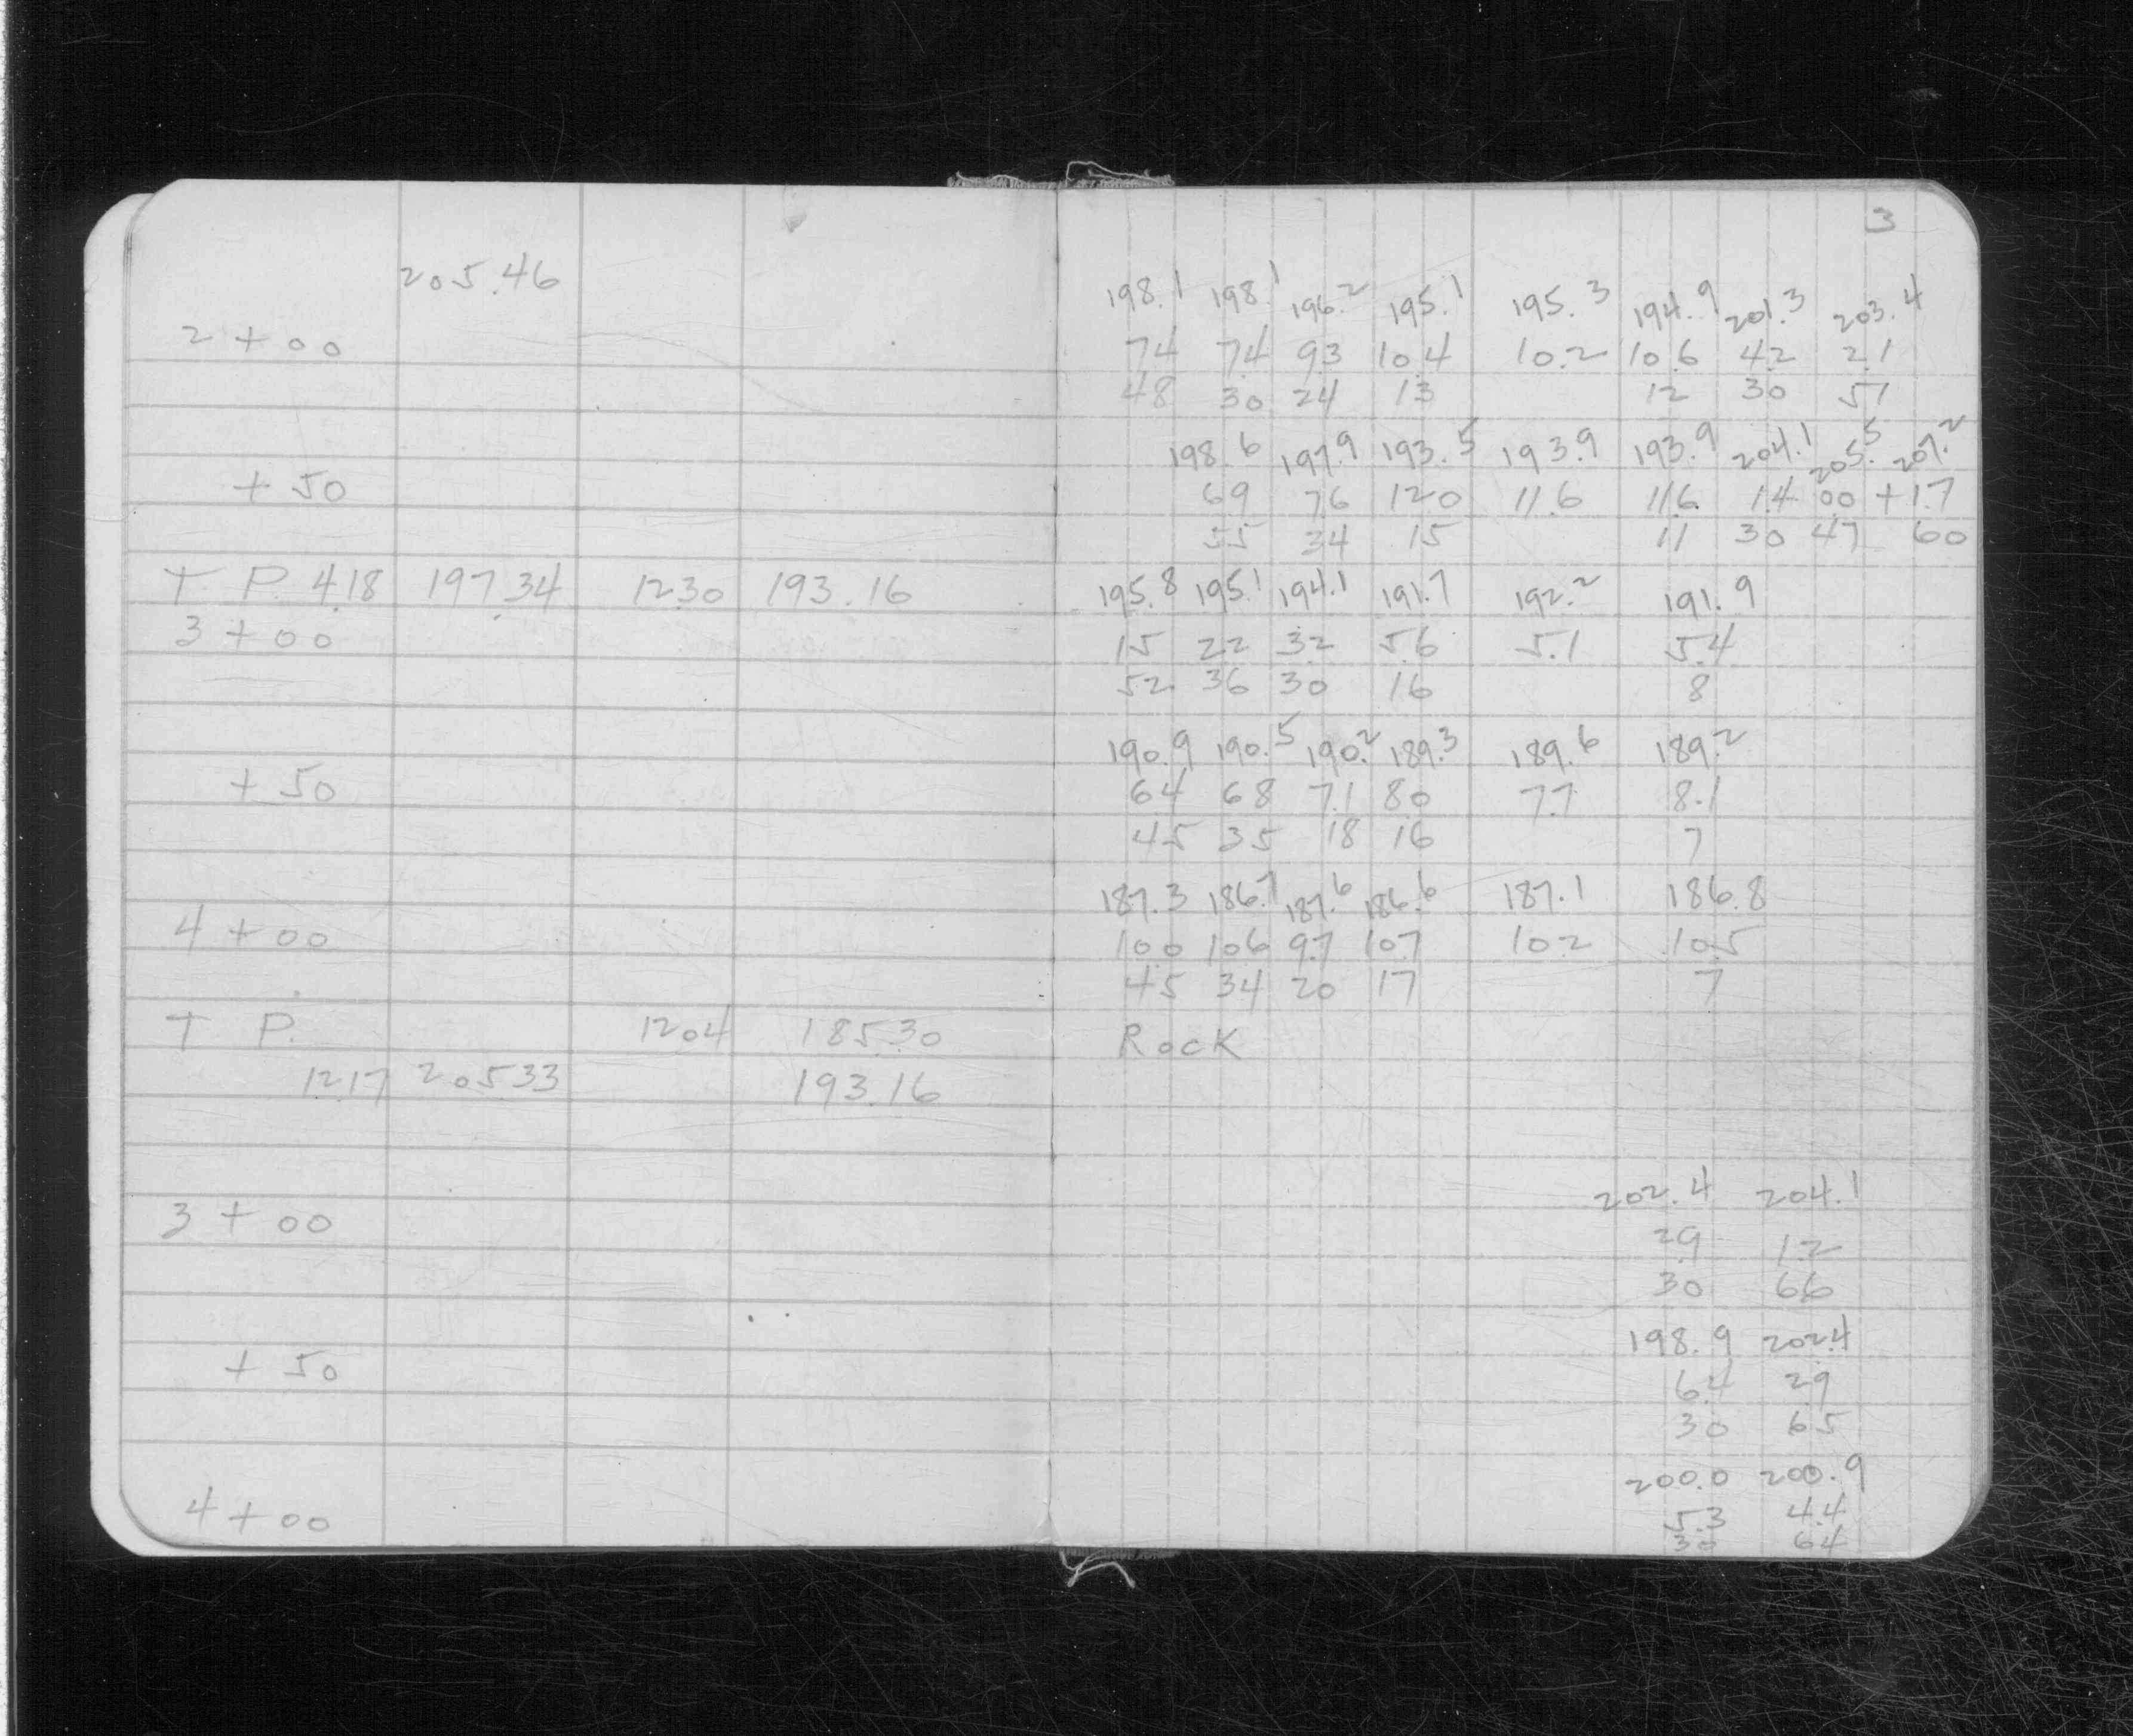 3
205.46
198.1 198.1 196.2 195.1 195.3 194.9 201.3 203.4
2+00 74 74 93 10.4 10.2 10.6 42 21
48 30 24 13 12 30 51
198.6 197.9 193.5 193.9 193.9 204.1 205.5 207.2
+50 69 76 120 11.6 11.6 1.4 00 +1.7
55 34 15 11 30 47 60
T. P. 4.18 197.34 12.30 193.16 195.8 195.1 194.1 191.7 192.2 191.9
3+00 15 22 32 5.6 5.1 5.4
52 36 30 16 8
190.9 190.5 190.2 189.3 189.6 189.2
+50 64 68 7.1 80 7.7 8.1
45 35 18 16 7
187.3 186.7 187.6 186.6 187.1 186.8
4+00 100 106 9.7 107 102 10.5
45 34 20 17 7
T P. 1204 185.30 Rock
12.17 205.33 193.16
202.4 204.1
3+00 29 1.2
30 66
198.9 202.4
+50 64 29
30 65
200.0 200.9
4+00 5.3 4.4
30 64